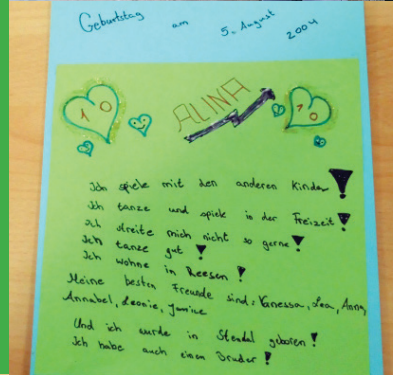 Geburtstag am 5. August 2004
10 ALINA 10
Ich spiele mit den anderen Kinder!
Ich tanze und spiele in der Freizeit!
Ich streite mich nicht so gerne!
Ich tanze gut!
Ich wohne in Reesen!
Meine besten Freunde sind: Vanessa, Lea, Anna,
Annabel, Leonie, Jamice
Und ich wurde in Stendal geboren!
Ich habe auch einen Bruder!